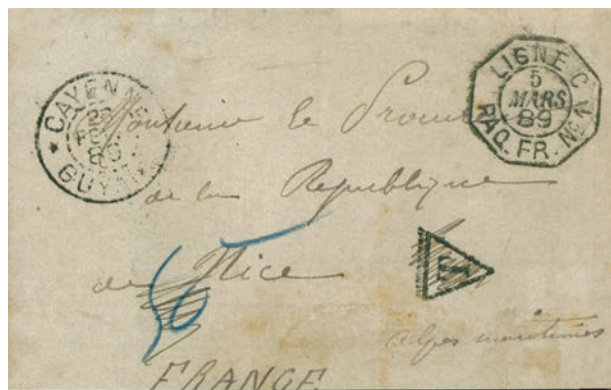 CAYENNE
GUYANE
LIGNE C
5
MARS
89
PAQ. FR. No 1
Monsieur le
de la Republique
de Nice
T
alpes maritimes
FRANCE